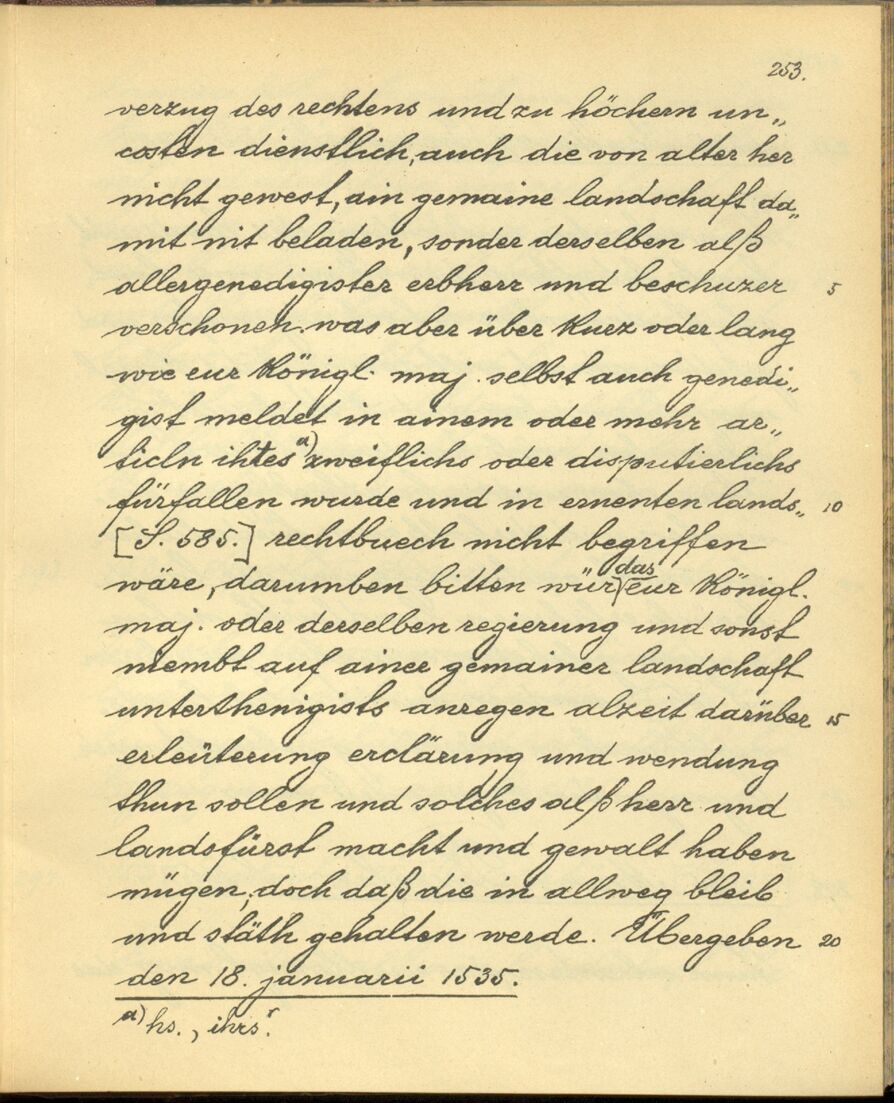 253.
verzug des rechtens und zu höchern un„
costen dienstlich, auch die von alter her
nicht gewest, ain gemaine landschaft da„
mit nit beladen, sonder derselben alß
allergenedigister erbherr und beschuzer 5
verschonen. was aber über kurz oder lang
wie eur königl. maj. selbst auch genedi„
gist meldet in ainem oder mehr ar„
ticln ihtes a) zweiflichs oder disputierlichs
fürfallen wurde und in ernenten lands„ 10
[S. 585.] rechtbuech nicht begriffen
wäre, darumben bitten wür das eur königl.
maj. oder derselben regierung und sonst
niembt auf ainer gemainer landschaft
unterthenigists anregen alzeit darüber 15
erleüterung erclärung und wendung
thun sollen und solches alß herr und
landsfürst macht und gewalt haben
mügen, doch daß die in allweg bleib
und stäth gehalten werde. Übergeben 20
den 18. januarii 1535.
a) hs. „ihrs“.